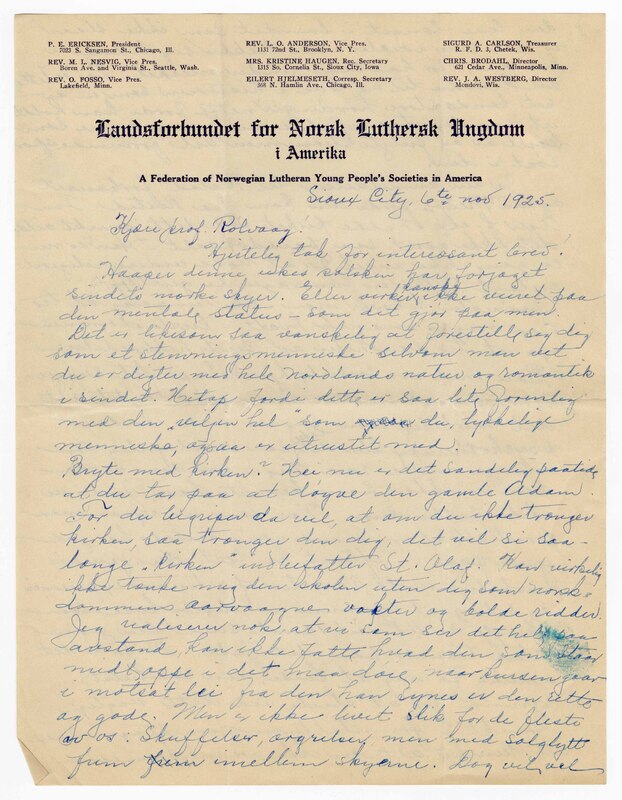 P. E. ERICKSEN, President
7023 S. Sangamon St., Chicago, Ill.
REV. M. L. NESVIG, Vice Pres.
Boren Ave. and Virginia St., Seattle, Wash.
REV. O. FOSSO, Vice Pres.
Lakefield, Minn.
REV. L. O. ANDERSON, Vice Pres.
1151 72nd St., Brooklyn, N. Y.
MRS. KRISTINE HAUGEN, Rec. Secretary
1315 So. Cornelia St., Sioux City, Iowa
EILERT HJELMESETH, Corresp. Secretary
368 N. Hamlin Ave., Chicago, Ill.
SIGURD A. CARLSON, Treasurer
R. F. D. 3, Chetek, Wis.
CHRIS. BRODAHL, Director
621 Cedar Ave., Minneapolis, Minn.
REV. J. A. WESTBERG, Director
Mondovi, Wis.
Landsforbundet for Norsk Luthersk Ungdom
i Amerika
A Federation of Norwegian Lutheran Young People's Societies in America
Sioux City, 6te nov 1925.
Kjære prof. Rolvaag!
Hjertelig tak for interessant brev!
Haaper denne ukes solskin har forjaget
sindets mørke skyer. Eller virker kanske ikke veiret paa
den mentale status – som det gjør paa men
Det er likesom saa vanskelig at forestille sig dig
som et stemningsmenneske selvom man vet
du er digter med hele Nordlands natur og romantik
i sindet. fordi dette er saa lite forenlig
med den "viljen hel" som du, lykkelige
menneske, ogsaa er utrustet med.
Bryte med kirken? Nei nu er det sandelig paatide
at du tar paa at døyve den gamle Adam.
For du begriper da vel, at om du ikke trænger
kirken, saa trænger den dig, det vil si saa-
længe "kirken" indbefatter St. Olaf. Kan virkelig
ikke tænke mig den skolen uten dig som norsk-
dommens aarvaagne vokter og bolde ridder.
Jeg realiserer nok, at vi som ser det hele paa
avstand, kan ikke fatte hvad den som staar
midt oppe i det maa døie, naar kursen gaar
i motsat lei fra den han synes er den rette
og gode. Men er ikke livet slik for de fleste
av os: Skuffelser, ærgrelser, men med solglytt
frem imellem skyerne. Dog vil vel